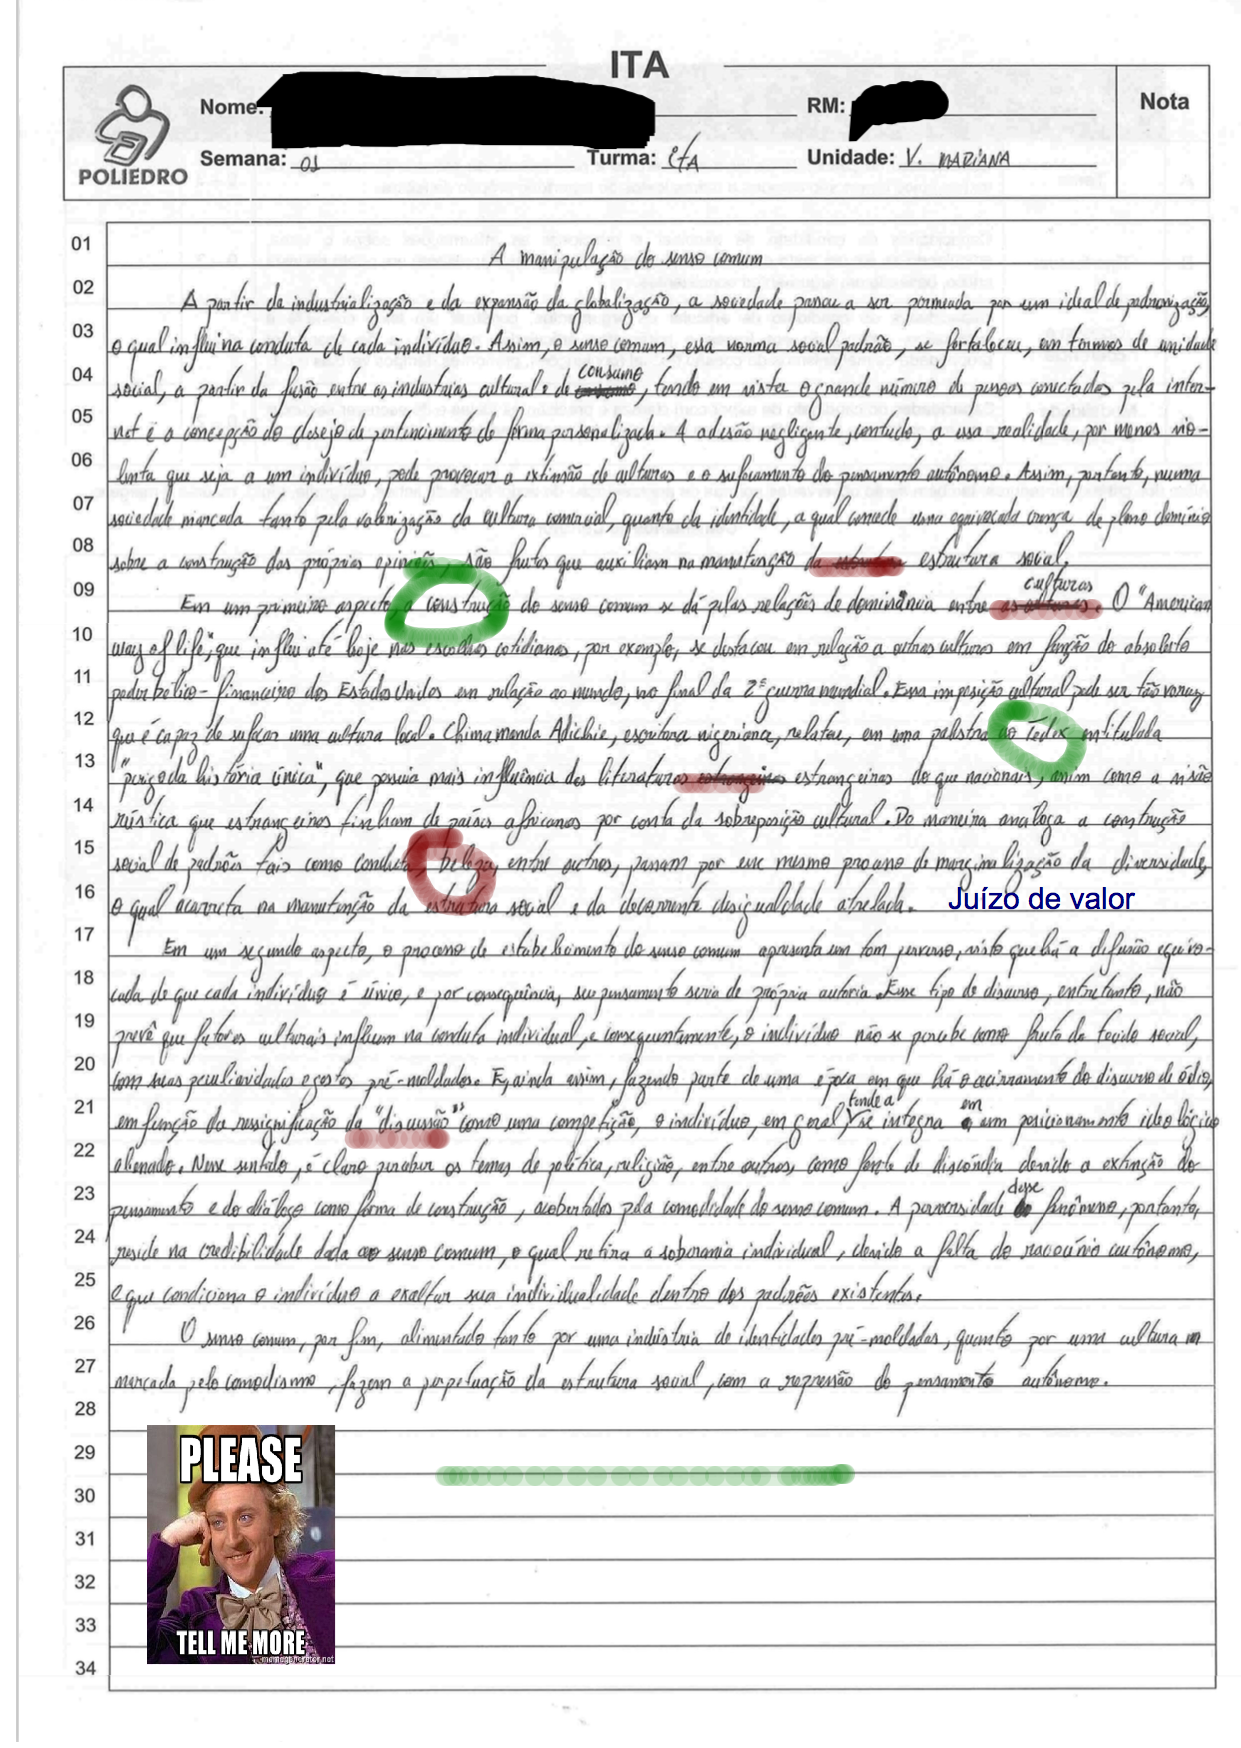 ITA
POLIEDRO
Nome:
RM:
Nota
Semana: 01
Turma: ITA
Unidade: V. MARIANA
01 A manipulação do senso comum
02 A partir da industrialização e da expansão da globalização, a sociedade passou a ser permeada por um ideal de padronização,
03 o qual influi na conduta de cada indivíduo. Assim, o senso comum, essa norma social padrão, se fortaleceu, em termos de unidade
04 social, a partir da fusão entre as industrias cultural e de consumo, tendo em vista o grande número de pessoas conectadas pela inter-
05 net é a concepção do desejo de pertencimento de forma personalizada. A adesão negligente, contudo, a essa realidade, por menos vio-
06 lenta que seja a um indivíduo, pode provocar a extinsão de culturas e o sufocamento do pensamento autônomo. Assim, portanto, numa
07 sociedade marcada tanto pela valorização da cultura comercial, quanto da identidade, a qual concede uma equivocada crença de pleno domínio
08 sobre a construção das próprias opiniões, são frutos que auxiliam na manutenção da estrutura social.
09 Em um primeiro aspecto, a construção do senso comum se dá pelas relações de dominância entre culturas. O "American
10 way of life", que influi até hoje nas escolhas cotidianas, por exemplo, se destacou em relação a outras culturas em função do absoluto
11 poder bélico-financeiro dos Estados Unidos em relação ao mundo, no final da 2ª guerra mundial. Essa imposição cultural pode ser tão voraz
12 que é capaz de sufocar uma cultura local. Chimamanda Adichie, escritora nigeriana, relatou, em uma palestra ao Tedex entitulada
13 "perigo da história única", que possuia mais influência das literaturas estrangeiras do que nacionais, assim como a visão
14 rústica que estrangeiros tinham de países africanos por conta da sobreposição cultural. Da maneira análoga a construção
15 social de padrões tais como conduta, beleza, entre outros, passam por esse mesmo processo de marginalização da diversidade,
16 o qual acarreta na manutenção da estrutura social e da decorrente desigualdade atrelada. Juízo de valor
17 Em um segundo aspecto, o processo de estabelecimento do senso comum apresenta um tom perverso, visto que há a difusão equivo-
18 cada de que cada indivíduo é único, e por consequência, seu pensamento seria de própria autoria. Esse tipo de discurso, entretanto, não
19 prevê que fatores culturais influem na conduta individual, e consequentemente, o indivíduo não se percebe como fruto do tecido social,
20 com suas peculiaridades e gostos pré-moldados. E, ainda assim, fazendo parte de uma época em que há o acirramento do discurso de ódio,
21 em função da ressignificação da "discussão" como uma competição, o indivíduo, em geral, tende a se integra em um posicionamento ideológico
22 alienado. Nesse sentido, é claro perceber os temas de política, religião, entre outros, como fonte de discórdia devido a extinção do
23 pensamento e do diálogo como forma de construção, acobertados pela comodidade do senso comum. A perversidade desse fenômeno, portanto,
24 reside na credibilidade dada ao senso comum, o qual retira a soberania individual, devido a falta de raciocínio autônomo,
25 o que condiciona o indivíduo a exaltar sua individualidade dentro dos padrões existentes.
26 O senso comum, por fim, alimentado tanto por uma indústria de identidades pré-moldadas, quanto por uma cultura
27 marcada pelo comodismo, fazem a perpetuação da estrutura social, com a repressão do pensamento autônomo.
28
29
30
31
32
33
34
PLEASE
TELL ME MORE
memegenerator.net